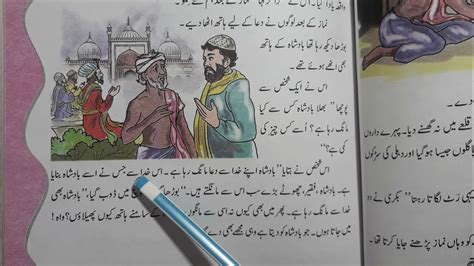 نماز کے بعد لوگوں نے دعا کے لیے ہاتھ اٹھا دیے۔
بوڑھا دیکھ رہا تھا بادشاہ کے ہاتھ
بھی اٹھے ہوئے تھے۔
اس نے ایک شخص سے
پوچھا ”بھلا بادشاہ کس سے کیا
مانگ رہا ہے؟ اُسے کس چیز کی
کمی ہے؟“
اس شخص نے بتایا ”بادشاہ اپنے خدا سے دعا مانگ رہا ہے۔ اس خدا سے جس نے اسے بادشاہ بنایا
ہے۔ بادشاہ، فقیر، چھوٹے بڑے سب اس سے مانگتے ہیں۔“ بوڑھا میں ڈوب گیا، ”بادشاہ بھی
خدا سے مانگ رہا ہے۔ پھر میں بھی کیوں نہ اسی سے مانگوں کے سامنے ہاتھ کیوں پھیلاؤں؟ واہ!
میں جاتا ہوں۔ جو بادشاہ کو دیتا ہے وہی مجھے بھی دے
دے۔
قلعے میں نہ گھسنے دیا۔ پہرے داروں
گلیوں جیسا ہو گیا اور دہلی کی سڑکوں
رٹ لگاتا رہتا۔“
نماز پڑھانے جایا کرتا تھا۔